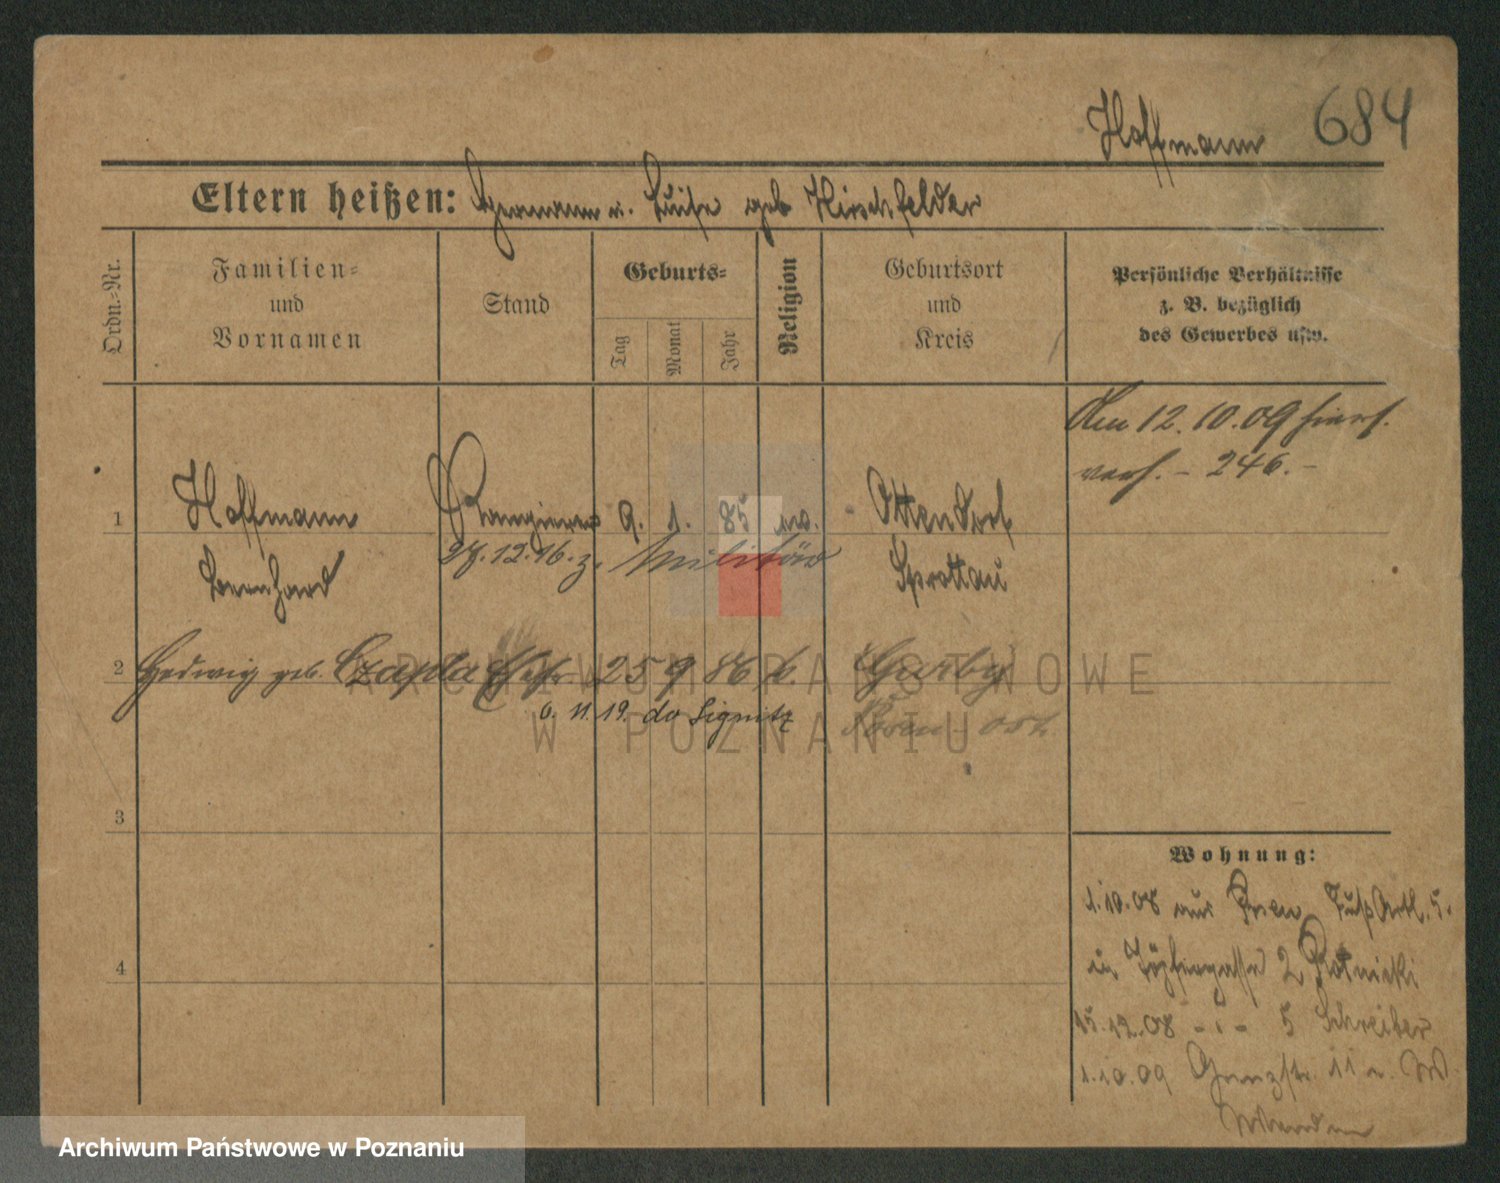 Hoffmann 684
Eltern heißen: Hermann u. Luise geb Hirschfelder
Ordn.-Nr.
Familien-
und
Vornamen
Stand
Geburts-
Tag
Monat
Jahr
Religion
Geburtsort
und
Kreis
Persönliche Verhältnisse
z. B. bezüglich
des Gewerbes usw.
Am 12.10.09 hiers.
verh. – 246. –
1 Hoffmann Rangierer 9. 1. 85 ev. Ottendorf
28.12.16. z. Militär
Bernhard Sprottau
2 Hedwig geb. Czapla Ehefr. 25 9 86 k. Gurby
6. 11. 19. do Lignitz Posen-Ost
3
4
Wohnung:
1.10.08 aus Posen Fuß Artl. 5.
in Töpfergasse 2 Ratnicki
15.12.08 - " - 5 Schreiber
1.10.09 11
ARCHIWUM PAŃSTWOWE
W POZNANIU
Archiwum Państwowe w Poznaniu